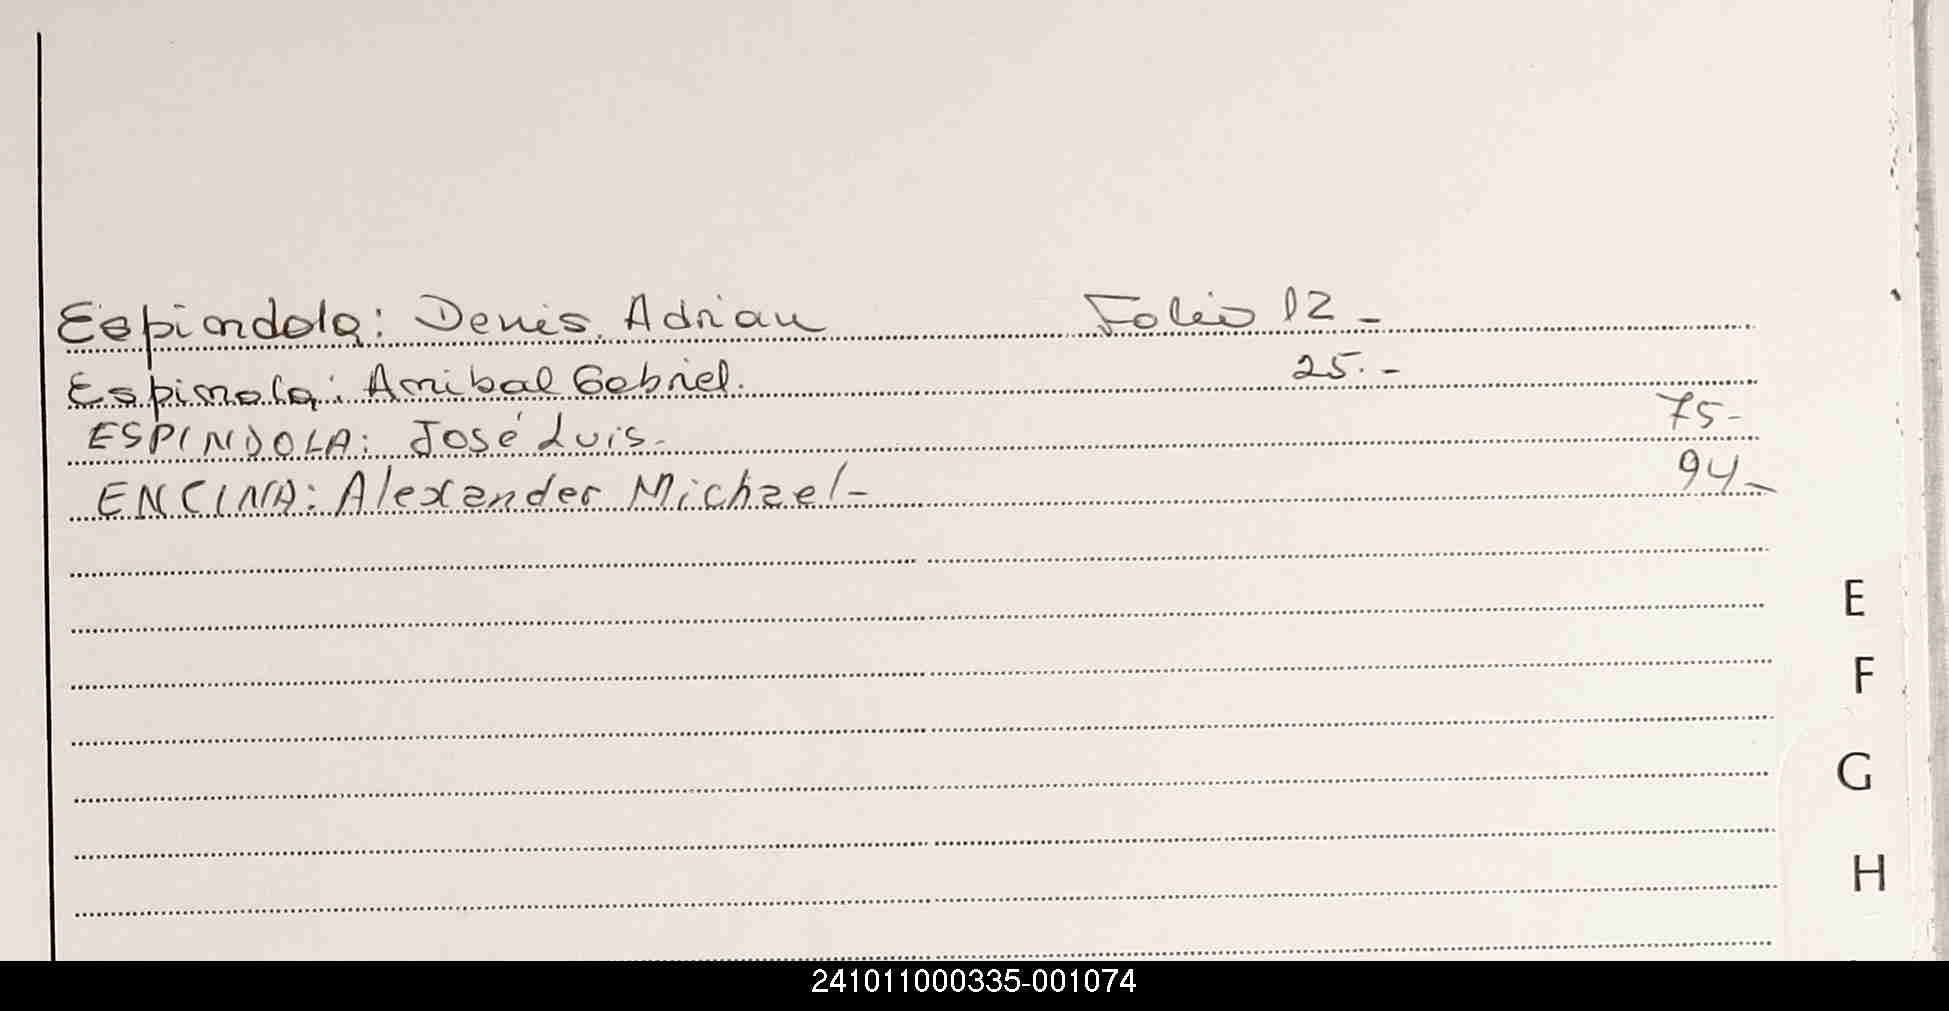 Espindola: Denis. Adrian Folio 12-
Espinola: Anibal Gabriel. 25.-
ESPINDOLA: José Luis. 75-
ENCINA: Alexander Michael- 94-
E
F
G
H
241011000335-001074